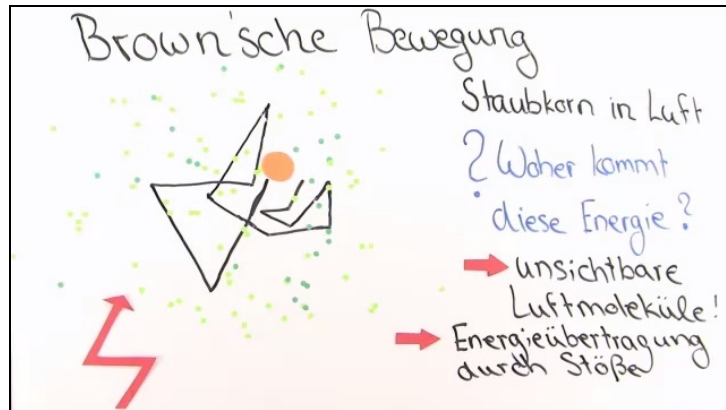 Brown'sche Bewegung
Staubkorn in Luft
? Woher kommt
diese Energie?
unsichtbare
Luftmoleküle!
Energieübertragung
durch Stöße